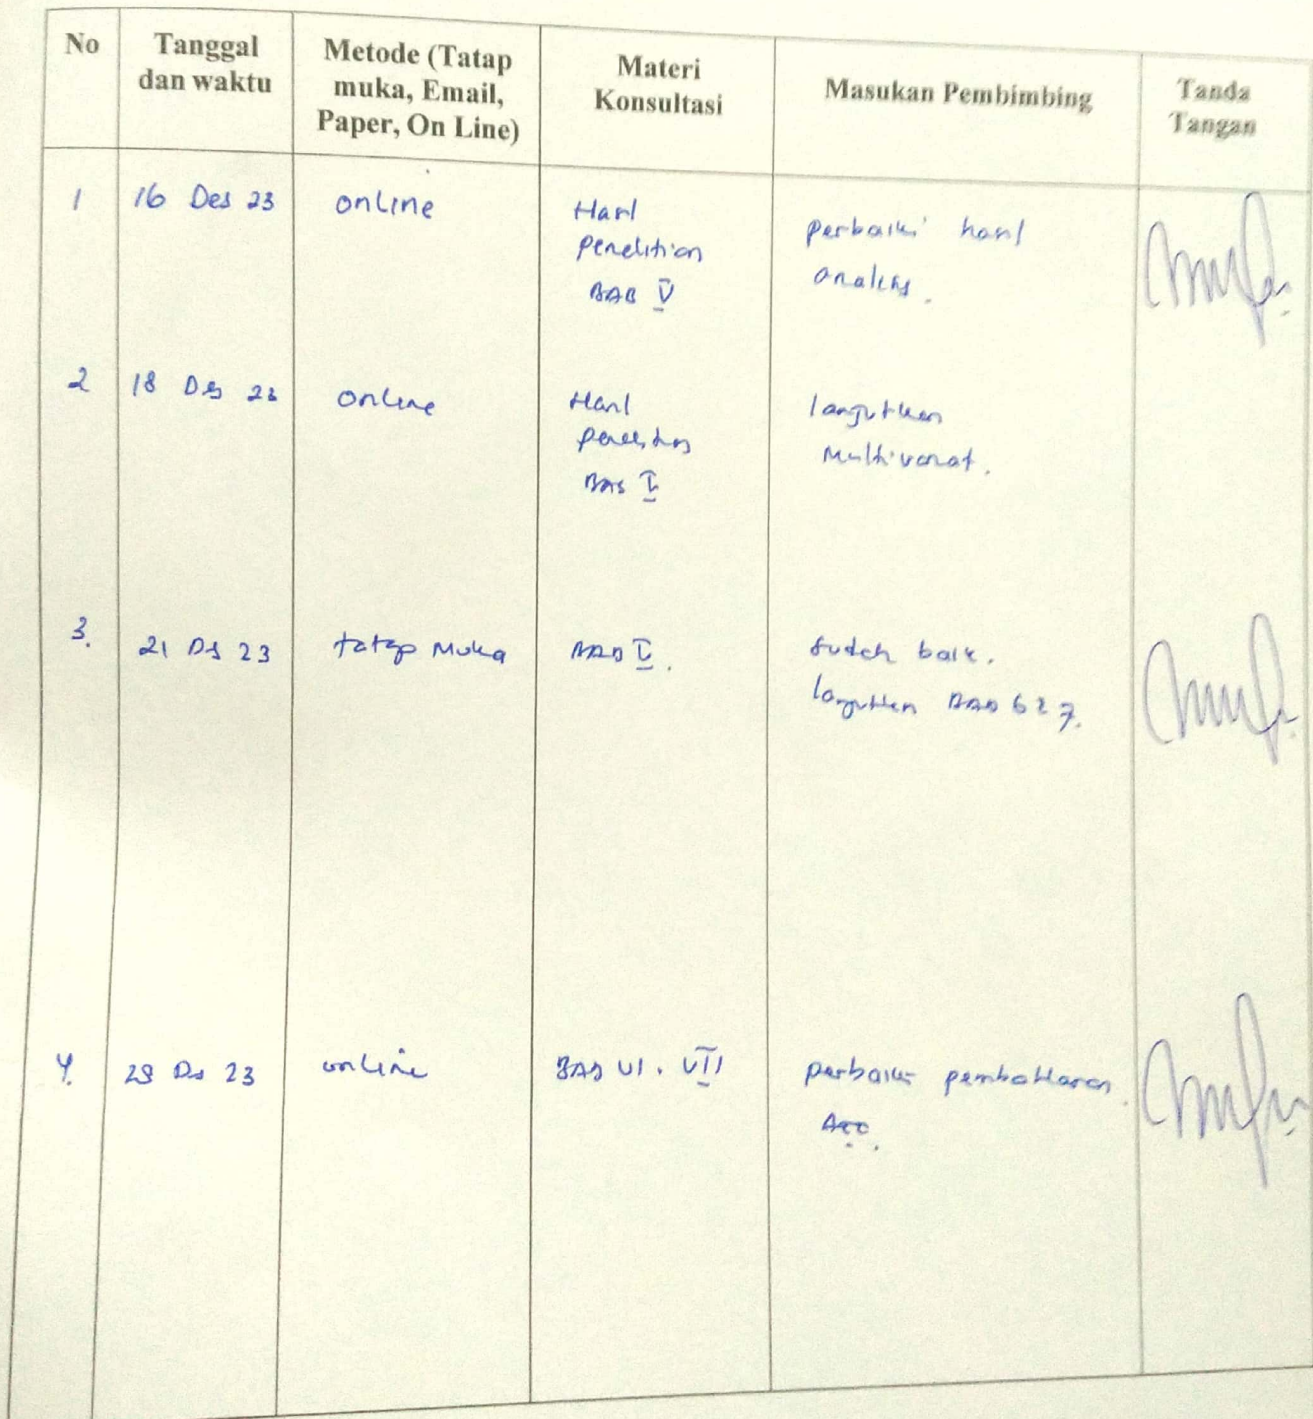 No
Tanggal
dan waktu
Metode (Tatap
muka, Email,
Paper, On Line)
Materi
Konsultasi
Masukan Pembimbing
Tanda
Tangan
1
16 Des 23
online
Hasil
penelitian
BAB V
perbaiki hasil
analisis.
2
18 Des 23
online
Hasil
penelitian
BAB V
lanjutkan
multivariat.
3.
21 Des 23
tatap muka
BAB V.
sudah baik.
lanjutkan BAB 6 & 7.
4.
Des 23
online
BAB VI. VII
perbaiki pembahasan.
Acc.